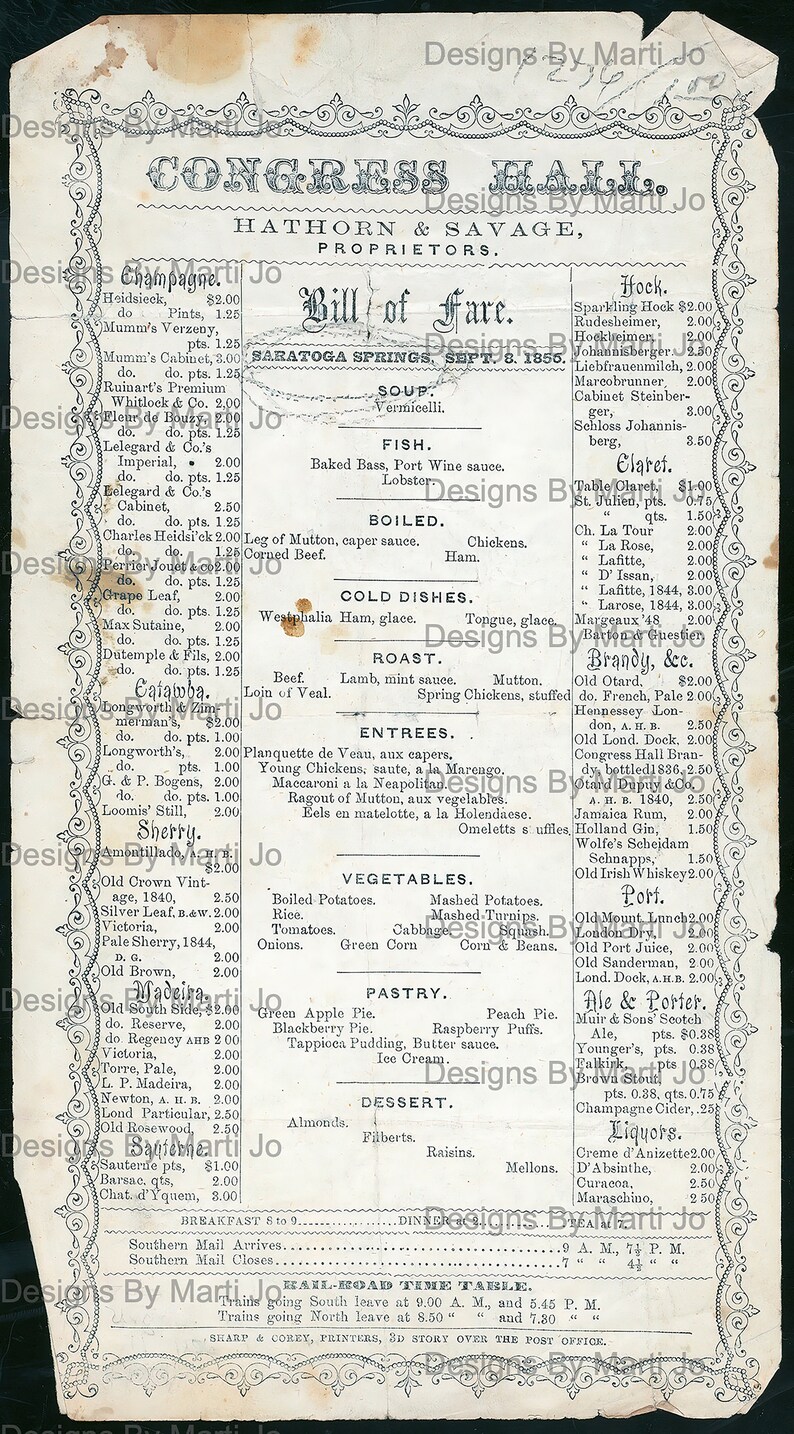 1236/100
CONGRESS HALL.
HATHORN & SAVAGE,
PROPRIETORS.
Champagne.
Heidsieck, $2.00
do Pints, 1.25
Mumm's Verzeny,
pts. 1.25
Mumm's Cabinet, 3.00
do. do. pts. 1.25
Ruinart's Premium
Whitlock & Co. 2.00
Fleur de Bouzy, 2.00
do. do. pts. 1.25
Lelegard & Co.'s
Imperial, 2.00
do. do. pts. 1.25
Lelegard & Co.'s
Cabinet, 2.50
do. do. pts. 1.25
Charles Heidsi'ck 2.00
do. do. 1.25
Perrier Jouet & co 2.00
do. do. pts. 1.25
Grape Leaf, 2.00
do. do. pts. 1.25
Max Sutaine, 2.00
do. do. pts. 1.25
Dutemple & Fils, 2.00
do. do. pts. 1.25
Catawba.
Longworth & Zim-
merman's, $2.00
do. do. pts. 1.00
Longworth's, 2.00
do. pts. 1.00
G. & P. Bogens, 2.00
do. do. pts. 1.00
Loomis' Still, 2.00
Sherry.
Amontillado, A. H. B.
$2.00
Old Crown Vint-
age, 1840, 2.50
Silver Leaf, B. & W. 2.00
Victoria, 2.00
Pale Sherry, 1844,
D. G. 2.00
Old Brown, 2.00
Madeira.
Old South Side, $2.00
do. Reserve, 2.00
do. Regency AHB 2 00
Victoria, 2.00
Torre, Pale, 2.00
L. P. Madeira, 2.00
Newton, A. H. B. 2.00
Lond Particular, 2.50
Old Rosewood, 2.50
Sauterne.
Sauterne pts, $1.00
Barsac, qts, 2.00
Chat. d'Yquem, 3.00
Bill of Fare.
SARATOGA SPRINGS, SEPT. 8. 1855.
SOUP.
Vermicelli.
FISH.
Baked Bass, Port Wine sauce.
Lobster.
BOILED.
Leg of Mutton, caper sauce. Chickens.
Corned Beef. Ham.
COLD DISHES.
Westphalia Ham, glace. Tongue, glace.
ROAST.
Beef. Lamb, mint sauce. Mutton.
Loin of Veal. Spring Chickens, stuffed
ENTREES.
Planquette de Veau, aux capers.
Young Chickens, saute, a la Marengo.
Maccaroni a la Neapolitan.
Ragout of Mutton, aux vegelables.
Eels en matelotte, a la Holendaese.
Omeletts s uffles.
VEGETABLES.
Boiled Potatoes. Mashed Potatoes.
Rice. Mashed Turnips.
Tomatoes. Cabbage. Squash.
Onions. Green Corn Corn & Beans.
PASTRY.
Green Apple Pie. Peach Pie.
Blackberry Pie. Raspberry Puffs.
Tappioca Pudding, Butter sauce.
Ice Cream.
DESSERT.
Almonds.
Filberts.
Raisins.
Mellons.
Hock.
Sparkling Hock $2.00
Rudesheimer, 2.00
Hockheimer, 2.00
Johannisberger 2.50
Liebfrauenmilch, 2.00
Marcobrunner, 2.00
Cabinet Steinber-
ger, 3.00
Schloss Johannis-
berg, 3.50
Claret.
Table Claret, $1.00
St. Julien, pts. 0.75
" qts. 1.50
Ch. La Tour 2.00
" La Rose, 2.00
" Lafitte, 2.00
" D' Issan, 2.00
" Lafitte, 1844, 3.00
" Larose, 1844, 3.00
Margeaux '48 2.00
Barton & Guestier.
Brandy, &c.
Old Otard, $2.00
do. French, Pale 2.00
Hennessey Lon-
don, A. H. B. 2.50
Old Lond. Dock, 2.00
Congress Hall Bran-
dy, bottled 1836, 2.50
Otard Dupuy & Co.
A. H. B. 1840, 2.50
Jamaica Rum, 2.00
Holland Gin, 1.50
Wolfe's Scheidam
Schnapps, 1.50
Old Irish Whiskey 2.00
Port.
Old Mount Lunch 2.00
London Dry, 2.00
Old Port Juice, 2.00
Old Sanderman, 2.00
Lond. Dock, A.H.B. 2.00
Ale & Porter.
Muir & Sons' Scotch
Ale, pts. $0.38
Younger's, pts. 0.38
Falkirk, pts 0.38
Brown Stout,
pts. 0.38, qts. 0.75
Champagne Cider, .25
Liquors.
Creme d'Anizette 2.00
D'Absinthe, 2.00
Curacoa, 2.50
Maraschino, 2 50
BREAKFAST 8 to 9..................DINNER at 2...............TEA at 7.
Southern Mail Arrives........................................9 A. M., 7½ P. M.
Southern Mail Closes.........................................7 " " 4½ " "
RAIL-ROAD TIME TABLE.
Trains going South leave at 9.00 A. M., and 5.45 P. M.
Trains going North leave at 8.50 " " and 7.30 " "
SHARP & COREY, PRINTERS, 3D STORY OVER THE POST OFFICE.
Designs By Marti Jo